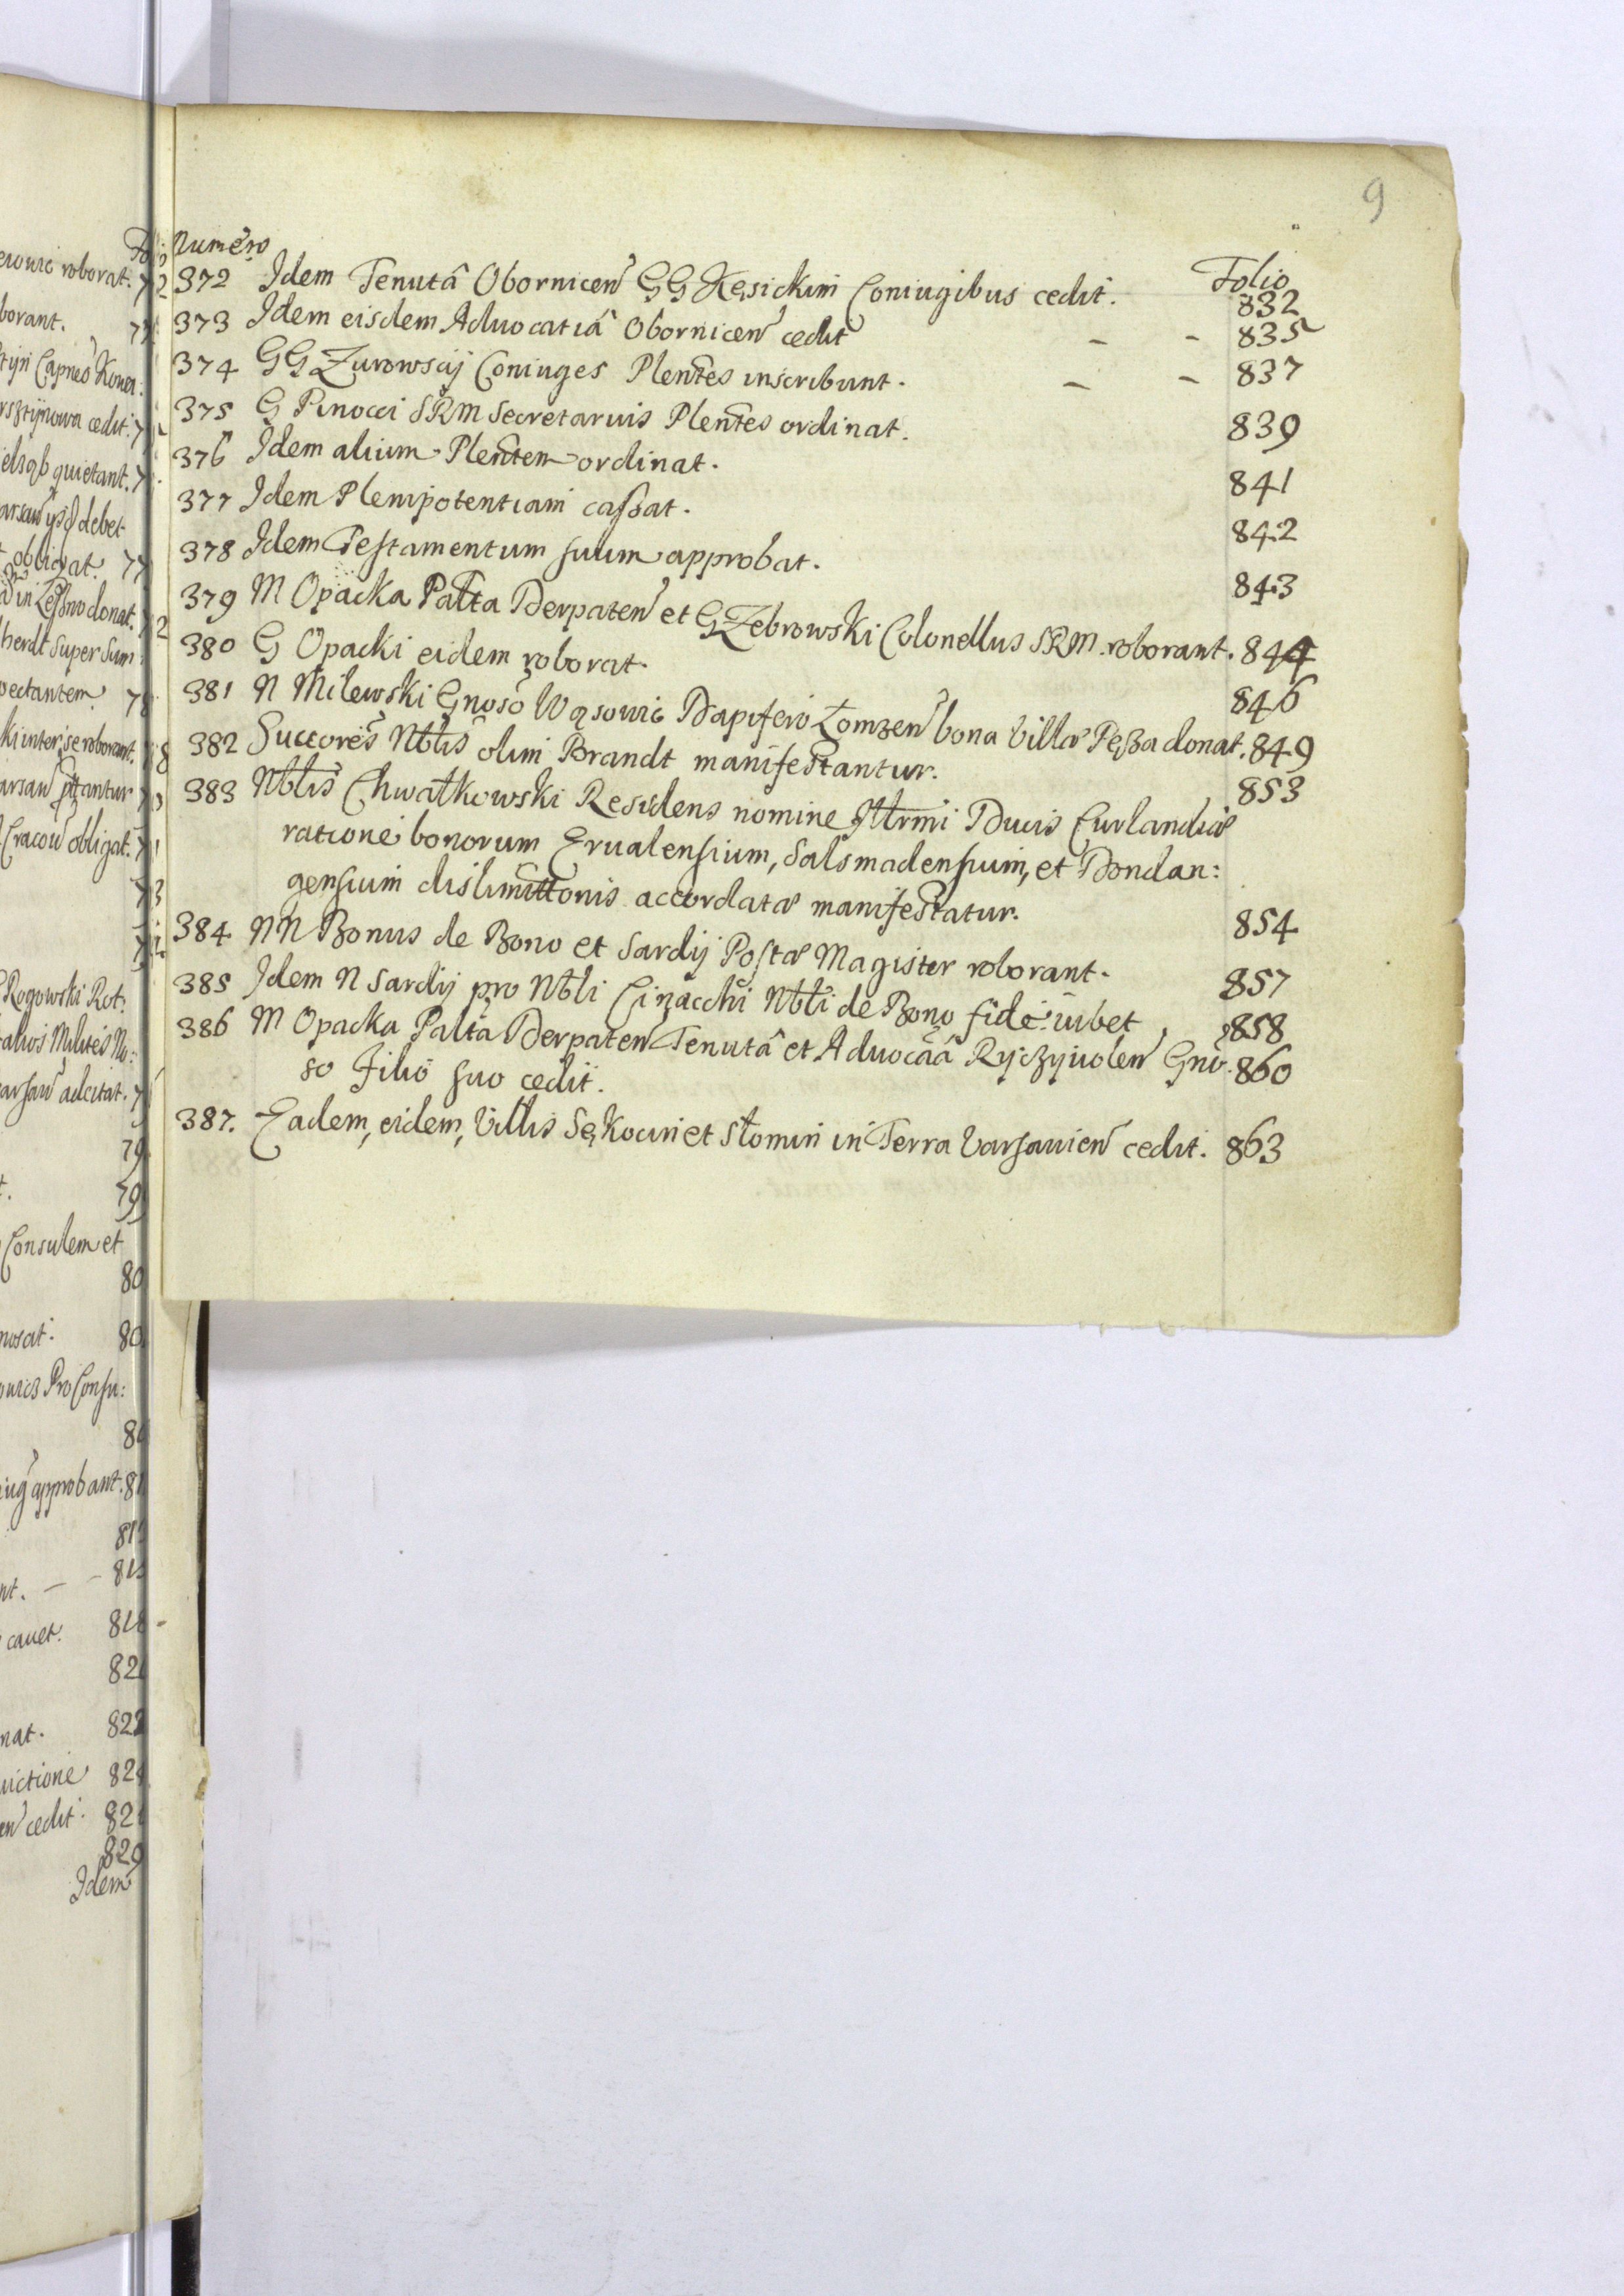 9
Numero Folio
372 Idem Tenutâ Obornicen GG Kęsickim Coniugibus cedit. 832
373 Idem eisdem Aduocatiâ Obornicen cedit - - 835
374 GG Zurowscÿ Coniuges Plentes inscribunt. - - 837
375 G Pinocci SRM Secretarius Plentes ordinat. 839
376 Idem alium Plentem ordinat. 841
377 Idem Plenipotentiam cassat. 842
378 Idem Testamentum suum approbat. 843
379 M Opacka Palta Derpaten et G Zebrowski Colonellus SRM roborant. 844
380 G Opacki eidem roborat. 846
381 N Milewski Gnoso Wąsowic Dapifero Łomzen bona Villæ Pęsza donat. 849
382 Succores Nblis olim Brandt manifestantur. 853
383 Nblis Chwałkowski Residens nomine Illrmi Ducis Curlandiæ
ratione bonorum Erualensium, Salsmadensium, et Dondan:
gensium dislimittonis accordatæ manifestatur. 854
384 NN Bonus de Bono et Sardij Postæ Magister roborant. 857
385 Idem N Sardij pro Nbli Cinacchi Nbli de Bono fide iubet 858
386 M Opacka Palta Derpaten Tenutâ et Aduocaâ Ryczÿwolen Gno: 860
so Filio suo cedit.
387. Eadem, eidem, Villis Sękocin et Słomin in Terra Varsauien cedit. 863
roborat.
borant.
quietant.
debet
obligat.
donat.
super Sum
roborant.
Cracou obligat.
Rogowski Rot:
alios Milites No:
adcitat.
79
79
Consulem et
80
80
Pro Consu:
approbant. 81
cauet.
822
829
cedit.
Idem